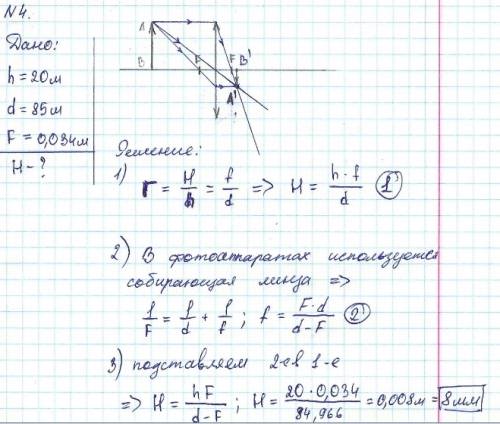 N4.
Дано:
h = 20м
d = 85м
F = 0,034м
H - ?
A
B
F
F
B'
A'
Решение:
1) Г = H/h = f/d => H = h·f/d (1)
2) В фотоаппаратах используется
собирающая линза =>
1/F = 1/d + 1/f ; f = F·d/d-F (2)
3) подставляем 2-е в 1-е
=> H = hF/d-F ; H = 20·0,034/84,966 = 0,008м = 8мм